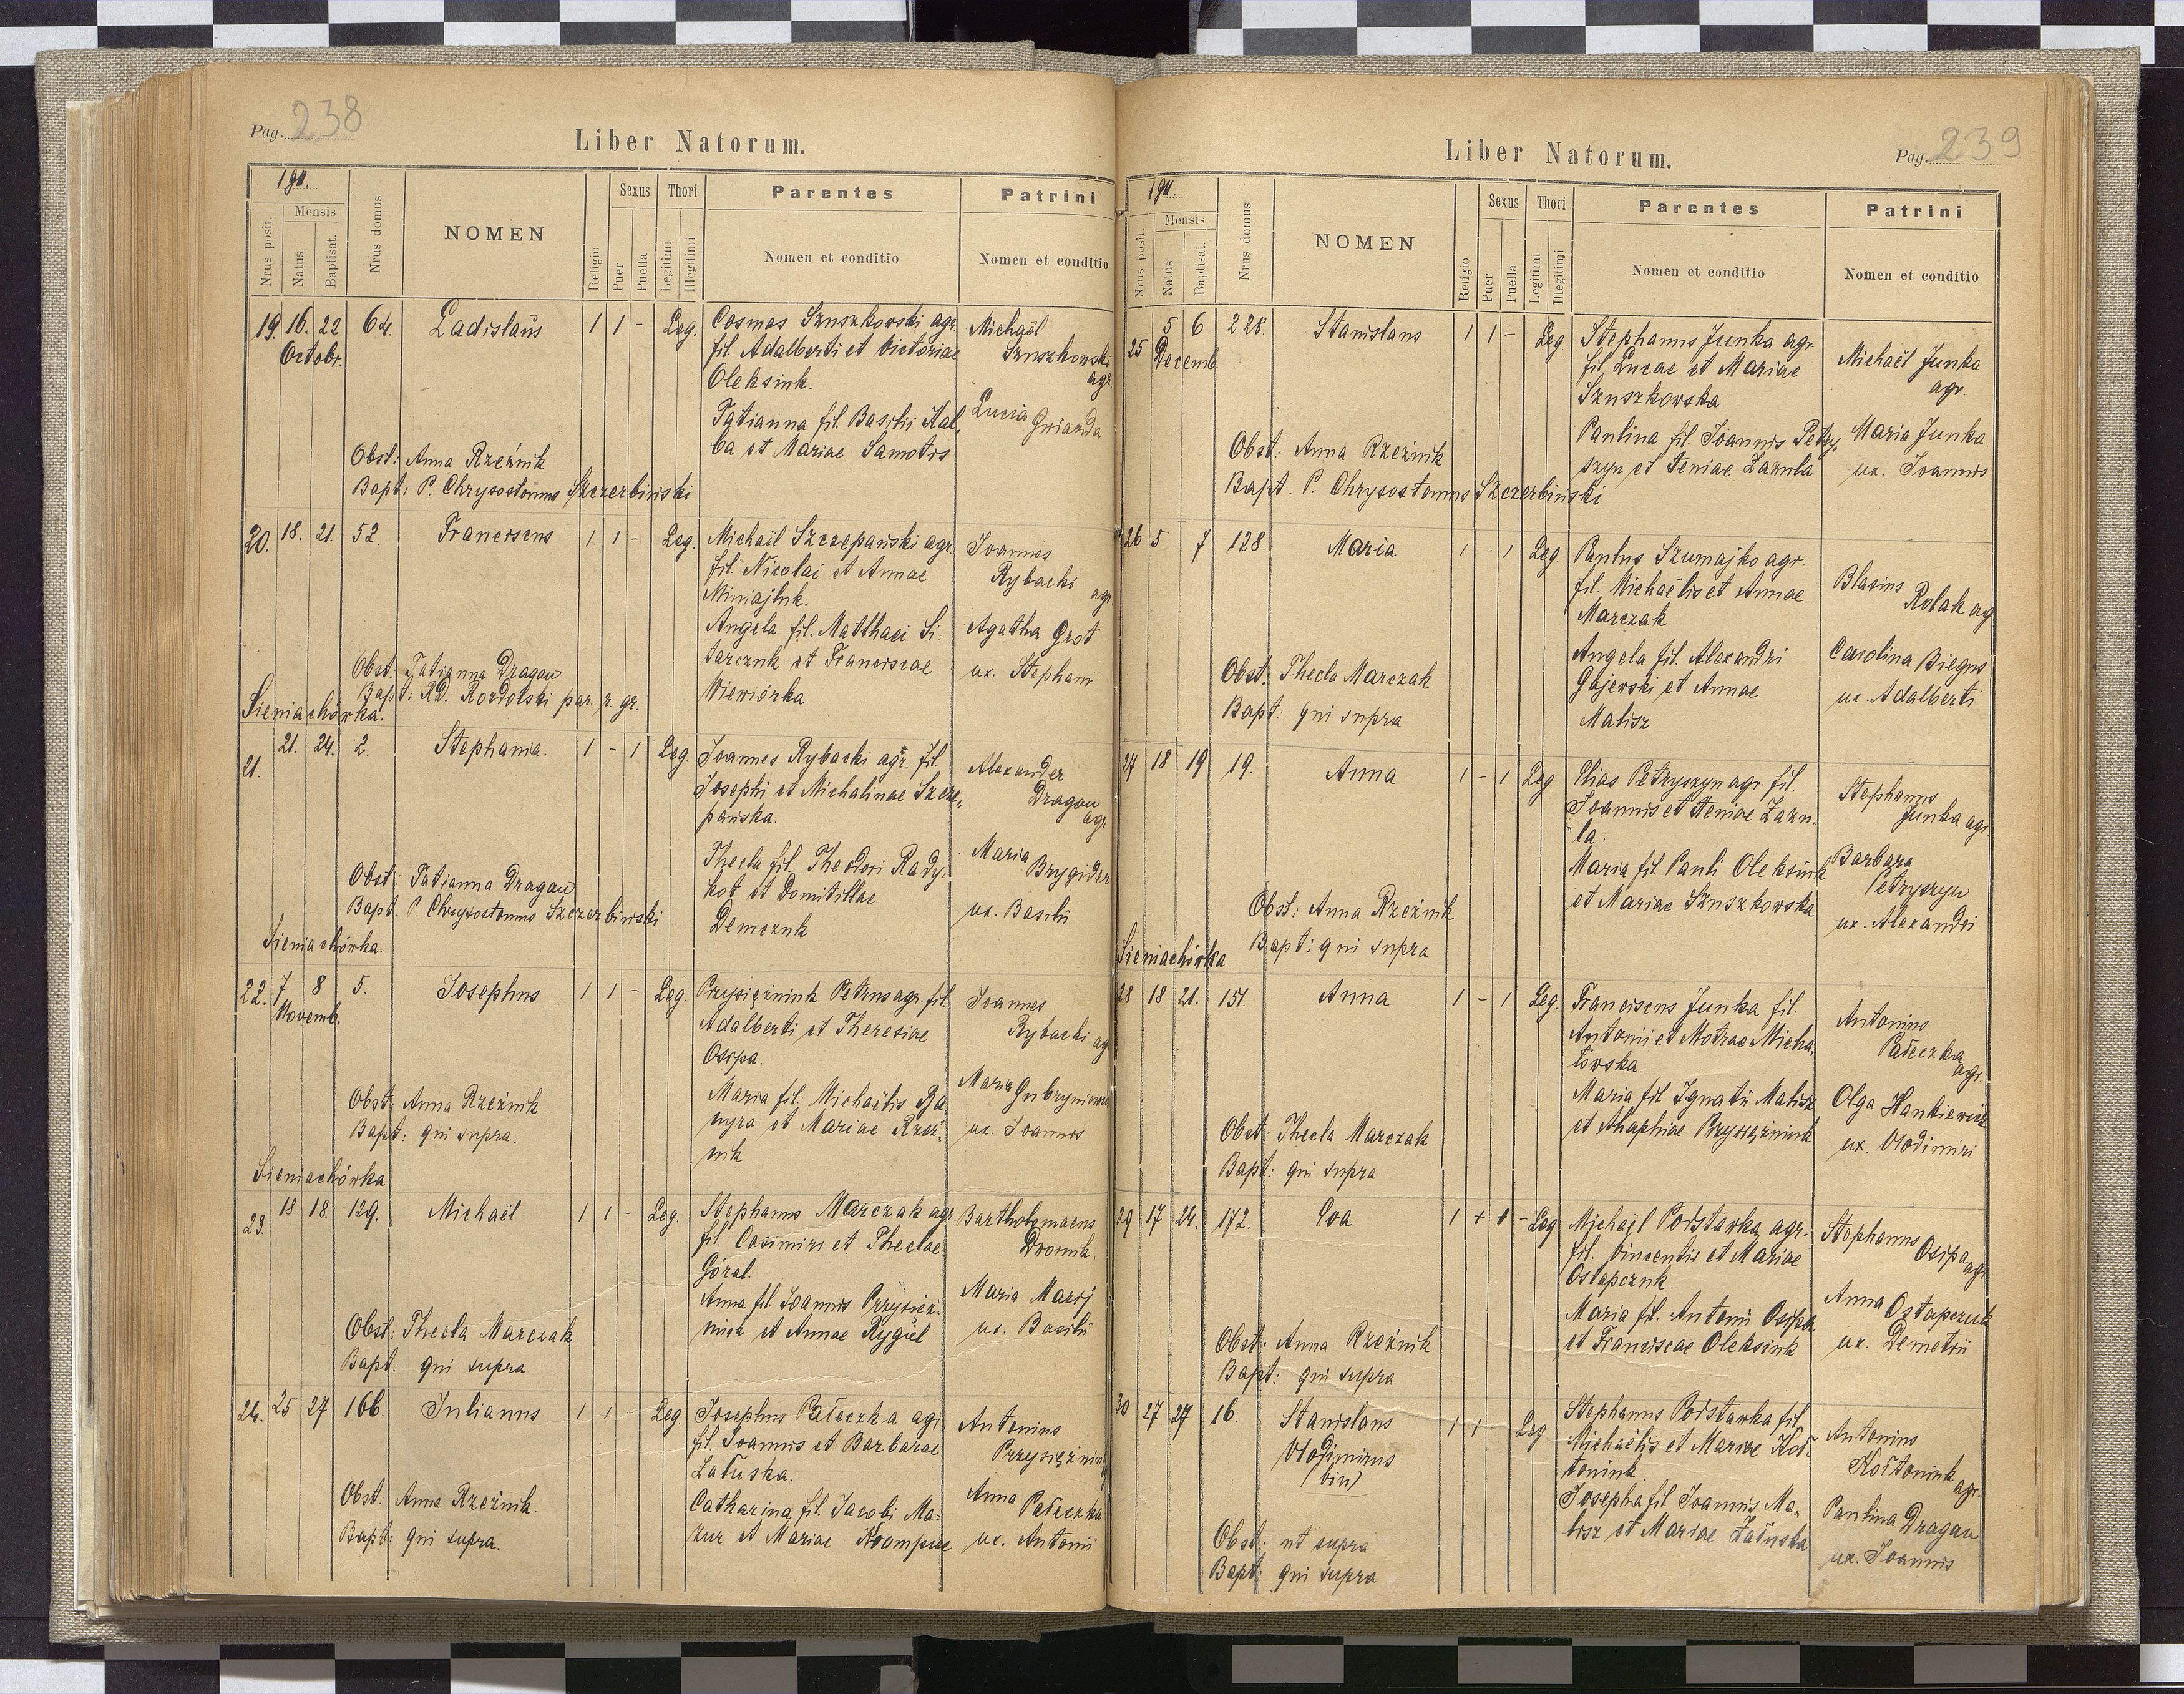 Pag. 238
Liber Natorum.
1911.
Nrus posit.
Mensis
Natus
Baptisat.
Nrus domus
NOMEN
Religio
Sexus
Puer
Puella
Thori
Legitimi
Illegitimi
Parentes
Nomen et conditio
Patrini
Nomen et conditio
19. 16. 22 64. Ladislaus 1 1 - Leg.
Octobr.
Cosmas Szuszkowski agr.
fil. Adalberti et Victoriae
Oleksiuk.
Tatianna fil. Basilii Kal-
ba et Mariae Samotis
Michaël
Szuszkowski
agr.
Lucia Gwiazda
Obst: Anna Rzeźnik
Bapt: P. Chrysostomus Szczerbiński
20. 18. 21. 52. Franciscus 1 1 - Leg.
Michaël Szczepański agr.
fil. Nicolai et Annae
Miniajluk.
Angela fil. Matthaei Si-
tarczuk et Franciscae
Wiewiórka
Joannes
Rybacki agr
Agatha Grot
ux. Stephani
Obst: Tatianna Dragan
Bapt: RD. Rozdolski par. r. gr.
Sieniachówka.
21. 21. 24. 2. Stephania. 1 - 1 Leg.
Joannes Rybacki agr. fil.
Josephi et Michalinae Szcze-
pańska.
Thecla fil. Theodori Rady-
kot et Domitillae
Demczuk
Alexander
Dragan
agr
Maria Brygider
ux. Basilii
Obst: Tatianna Dragan
Bapt. P. Chrysostomus Szczerbiński
Sieniachówka.
22. 7 8 5. Josephus 1 1 - Leg.
Novemb.
Przysiężniuk Petrus agr. fil.
Adalberti et Theresiae
Osipa.
Maria fil. Michaëlis
et Mariae Rzeź-
nik
Joannes
Rybacki ag
Maria
ux. Joannis
Obst: Anna Rzeźnik
Bapt: qui supra.
Sieniachówka
23. 18 18. 129. Michaël 1 1 - Leg.
Stephanus Marczak agr.
fil. Casimiri et Theclae
Góral.
Anna fil. Joannis Przysięż-
niuk et Annae Rygiel
Bartholomaeus
Dwornik.
Maria Marij
ux. Basilii
Obst: Thecla Marczak
Bapt: qui supra
24. 25 27 166. Julianus 1 1 - Leg
Josephus Pałeczka agr
fil. Joannis et Barbarae
Załuska.
Catharina fil. Jacobi Ma-
zur et Mariae
Antonius
Przysiężniuk
Anna Pałeczka
ux. Antonii
Obst: Anna Rzeźnik.
Bapt: qui supra.
Pag. 239
Liber Natorum.
1911.
Nrus posit.
Mensis
Natus
Baptisat.
Nrus domus
NOMEN
Religio
Sexus
Puer
Puella
Thori
Legitimi
Illegitimi
Parentes
Nomen et conditio
Patrini
Nomen et conditio
25 5 6 228. Stanislaus 1 1 - Leg
Decemb
Stephanus Junka agr.
fil. Lucae et Mariae
Szuszkowska
Paulina fil. Joannis Petry-
szyn et Xeniae Zazula
Michaël Junka
agr.
Maria Junka
ux. Joannis
Obst: Anna Rzeźnik
Bapt. P. Chrysostomus Szczerbiński
26 5 7 128. Maria 1 - 1 Leg.
Paulus Szumajko agr.
fil. Michaëlis et Annae
Marczak
Angela fil. Alexandri
Gajewski et Annae
Malisz
Blasius
Rolak ag
Carolina Biegus
ux. Adalberti
Obst: Thecla Marczak
Bapt: qui supra
27 18 19 19. Anna 1 - 1 Leg
Elias Petryszyn agr. fil.
Joannis et Xeniae Zazu-
la.
Maria fil. Pauli Oleksiuk
et Mariae Szuszkowska
Stephanus
Junka agr
Barbara
Petryszyn
ux. Alexandri
Obst: Anna Rzeźnik
Bapt: qui supra
Sieniachówka
28 18 21. 151. Anna 1 - 1 Leg.
Franciscus Junka fil.
Antonii et Motrae Micha-
łowska.
Maria fil. Ignatii Malisz
et Ahaphiae Przysiężniuk
Antonius
Pałeczka
agr.
Olga Hankiewicz
ux. Vlodimiri
Obst: Thecla Marczak
Bapt: qui supra
29 17 24. 172. Eva 1 + 1 - Leg
Michaël Podstawka agr.
fil. Vincentii et Mariae
Ostapczuk.
Maria fil. Antonii Osipa
et Franciscae Oleksiuk
Stephanus
Osipa agr
Anna Ostapczuk
ux. Demetrii
Obst: Anna Rzeźnik
Bapt: qui supra
30 27 27 16. Stanislaus 1 1 - Leg
Vlodimirus
(bin)
Stephanus Podstawka fil.
Michaëlis et Mariae Koł-
toniuk.
Josepha fil. Joannis Ma-
lisz et Mariae Załuska
Antonius
Kołtoniuk
agr.
Paulina Dragan
ux. Joannis
Obst: ut supra
Bapt: qui supra